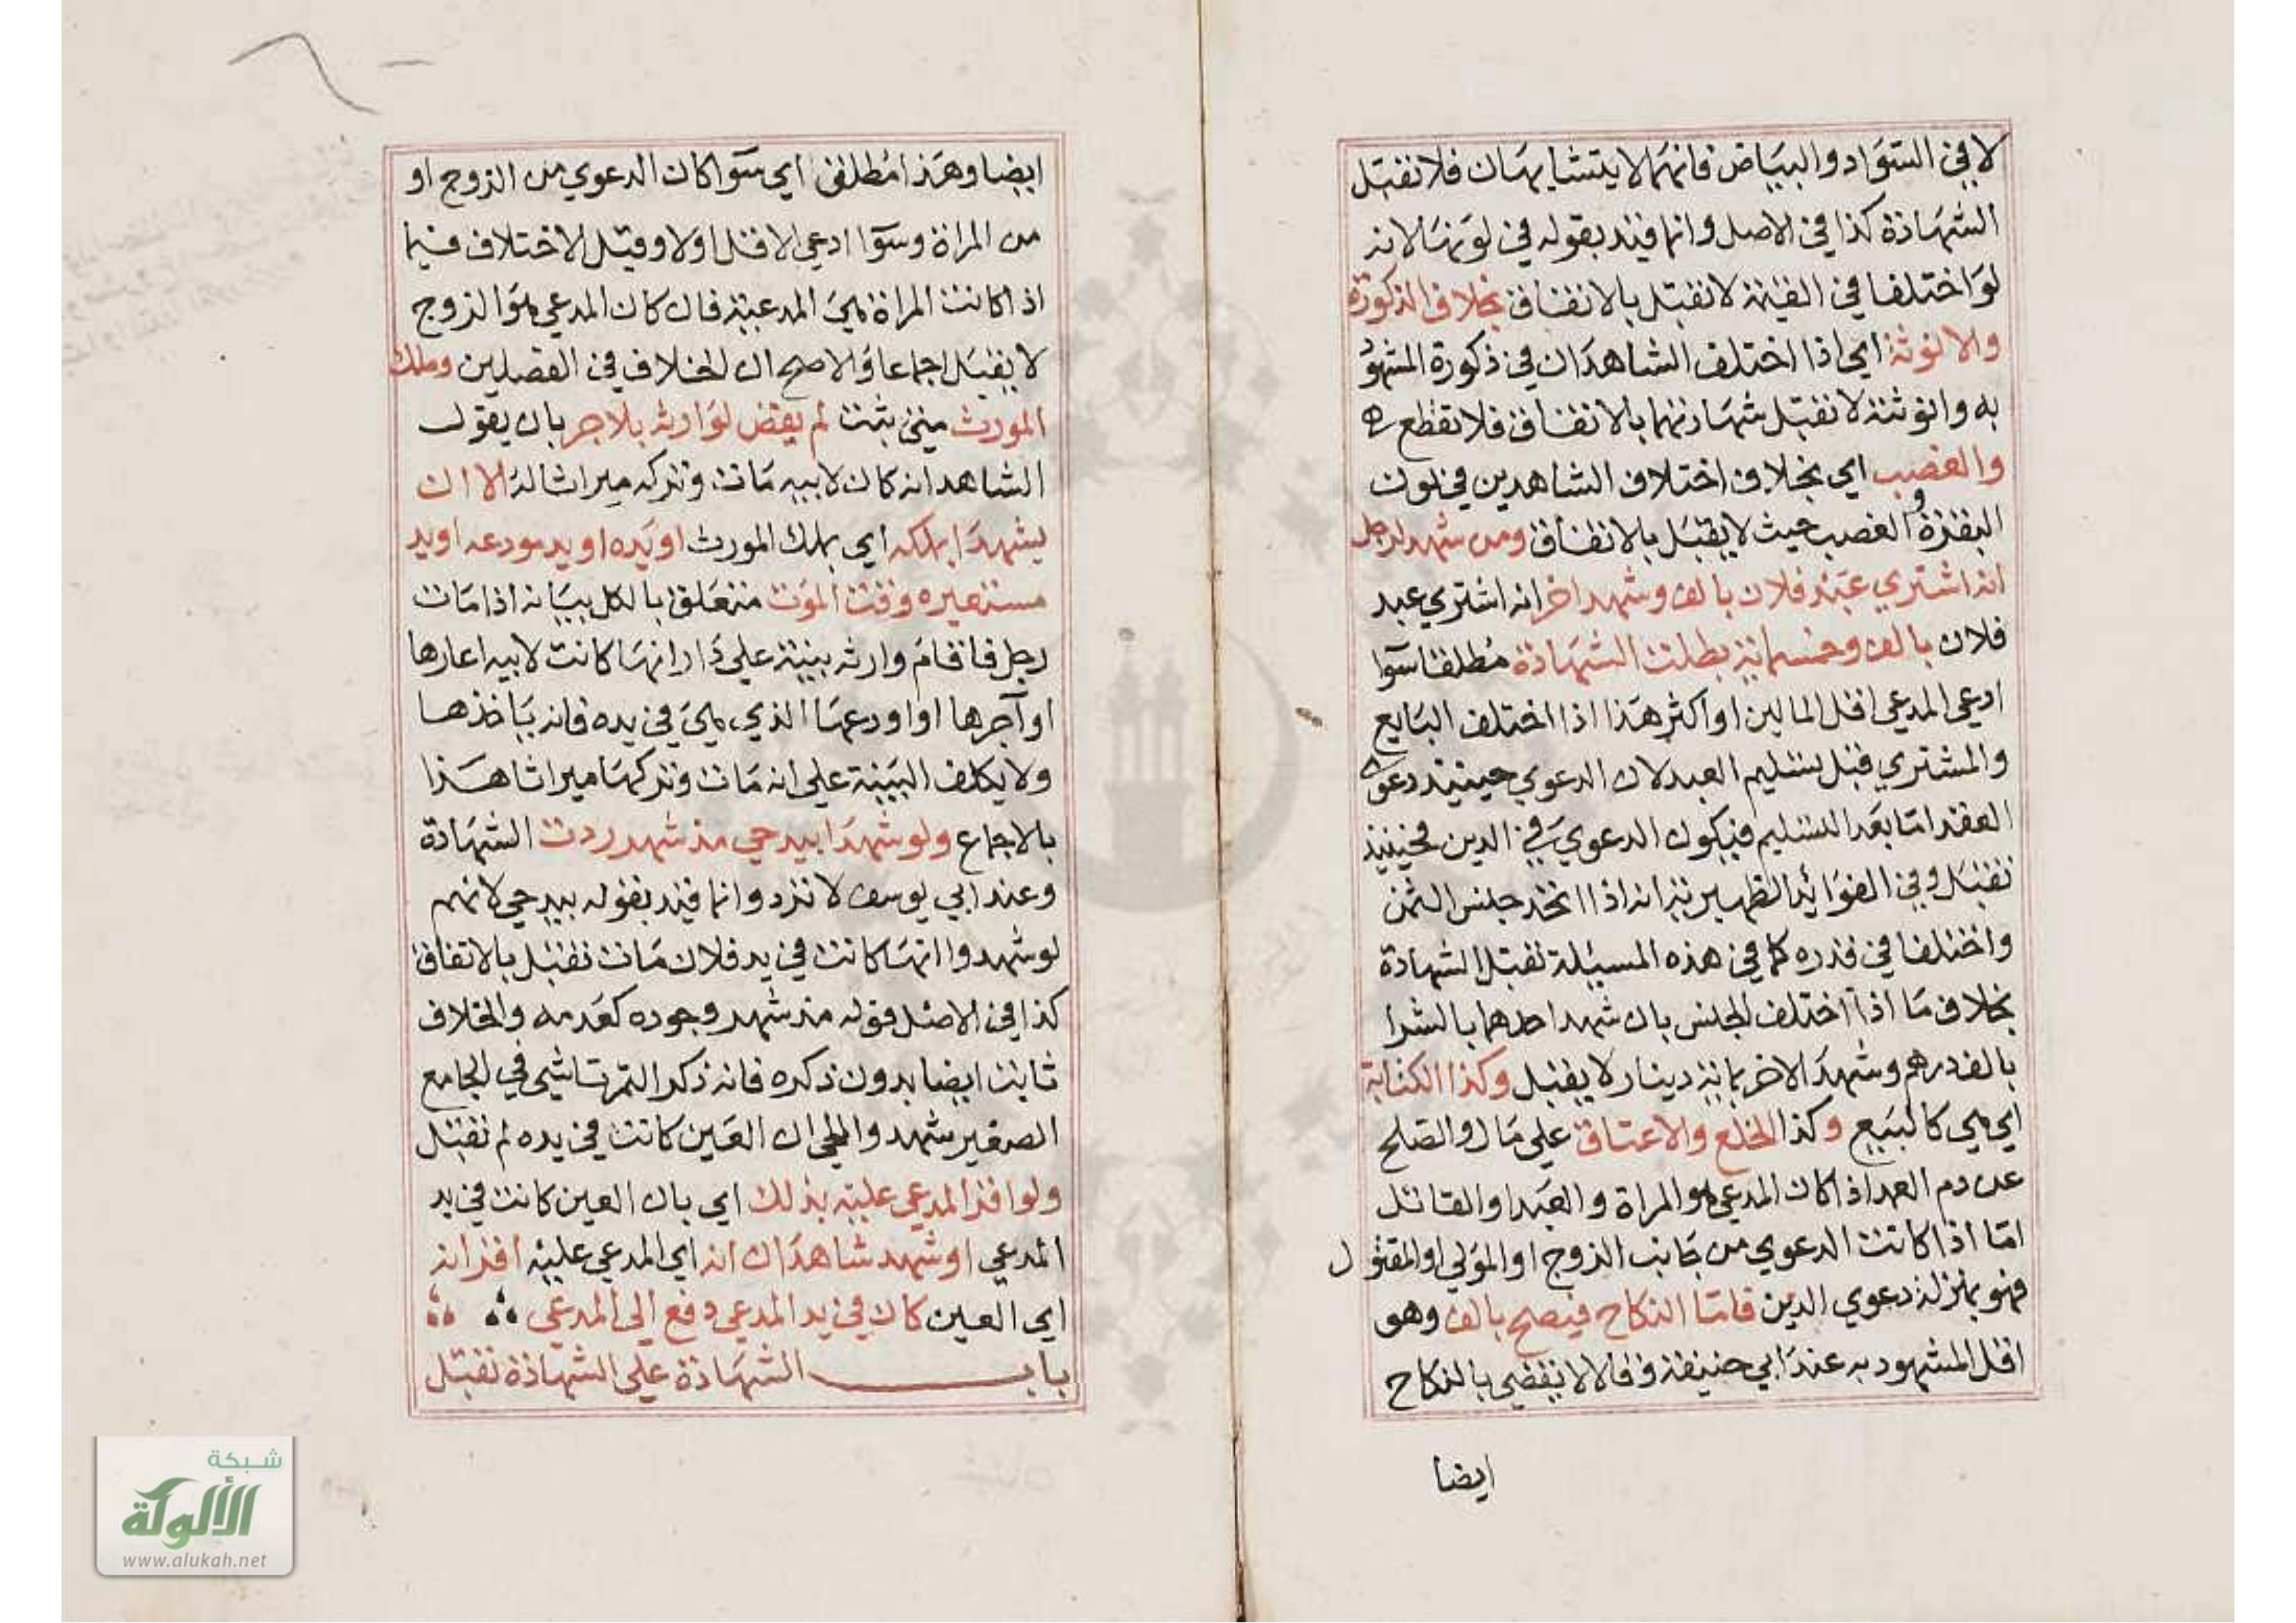 لا في السواد والبياض فانهما لا يتشابهان فلا تقبل
الشهادة كذا في الاصل وانما قيد بقوله في لونها لانه
لو اختلفا في القيمة لا تقبل بالاتفاق بخلاف الذكورة
والانوثة اي اذا اختلف الشاهدان في ذكورة المشهود
به وانوثته لا تقبل شهادتهما بالاتفاق فلا تقطع
والغصب اي بخلاف اختلاف الشاهدين في لون
البقرة والغصب حيث لا يقبل بالاتفاق ومن شهد لرجل
انه اشتري عبد فلان بالف وشهد اخر انه اشتري عبد
فلان بالف وخمسمائة بطلت الشهادة مطلقا سوا
ادعي المدعي اقل المالين او اكثر هذا اذا اختلف البايع
والمشتري قبل تسليم العبد لان الدعوي حينيذ دعوي
العقد اما بعد التسليم فيكون الدعوي في الدين فحينيذ
تقبل وفي الفوائد الظهيرية انه اذا اتحد جنس الثمن
واختلفا في قدره كما في هذه المسيلة تقبل الشهادة
بخلاف ما اذا اختلف الجنس بان شهد احدهما بالشرا
بالف درهم وشهد الاخر بماية دينار لا يقبل وكذا الكتابة
اي هي كالبيع وكذا الخلع والاعتاق علي مال والصلح
عن دم العمد اذا كان المدعي هو المراة والعبد او القاتل
اما اذا كانت الدعوي من جانب الزوج او المولي او المقتول
فهو بمنزلة دعوي الدين فاما النكاح فيصح بالف وهو
اقل المشهود به عند ابي حنيفة وقالا لا يقضي بالنكاح
ايضا
ايضا وهذا مطلق اي سوا كان الدعوي من الزوج او
من المراة وسوا ادعي الاقل اولا وقيل الاختلاف فيما
اذا كانت المراة هي المدعية فان كان المدعي هو الزوج
لا يقبل اجماعا والاصح ان الخلاف في الفصلين وملك
المورث متي ثبت لم يقض لوارثه بلا جر بان يقول
الشاهد انه كان لابيه مات وتركه ميراثا له الا ان
يشهدا بملكه اي بملك المورث او يده او يد مودعه او يد
مستعيره وقت الموت متعلق بالكل بيانه اذا مات
رجل فاقام وارثه بينة علي دار انها كانت لابيه اعارها
او آجرها او اودعها الذي هي في يده فانه ياخذها
ولا يكلف البينة علي انه مات وتركها ميراثا هذا
بالاجماع ولو شهدا بيد حي مذ شهر ردت الشهادة
وعند ابي يوسف لا ترد وانما قيد بقوله بيد حي لانهم
لو شهدوا انها كانت في يد فلان مات تقبل بالاتفاق
كذا في الاصل قوله مذ شهر وجوده كعدمه والخلاف
ثابت ايضا بدون ذكره فانه ذكر التمرتاشي في الجامع
الصغير شهدوا لحي ان العين كانت في يده لم تقبل
ولو اقر المدعي عليه بذلك اي بان العين كانت في يد
المدعي او شهد شاهدان انه اي المدعي عليه اقر انه
اي العين كان في يد المدعي دفع الي المدعي
باب الشهادة علي الشهادة تقبل
شبكة
الألوكة
www.alukah.net